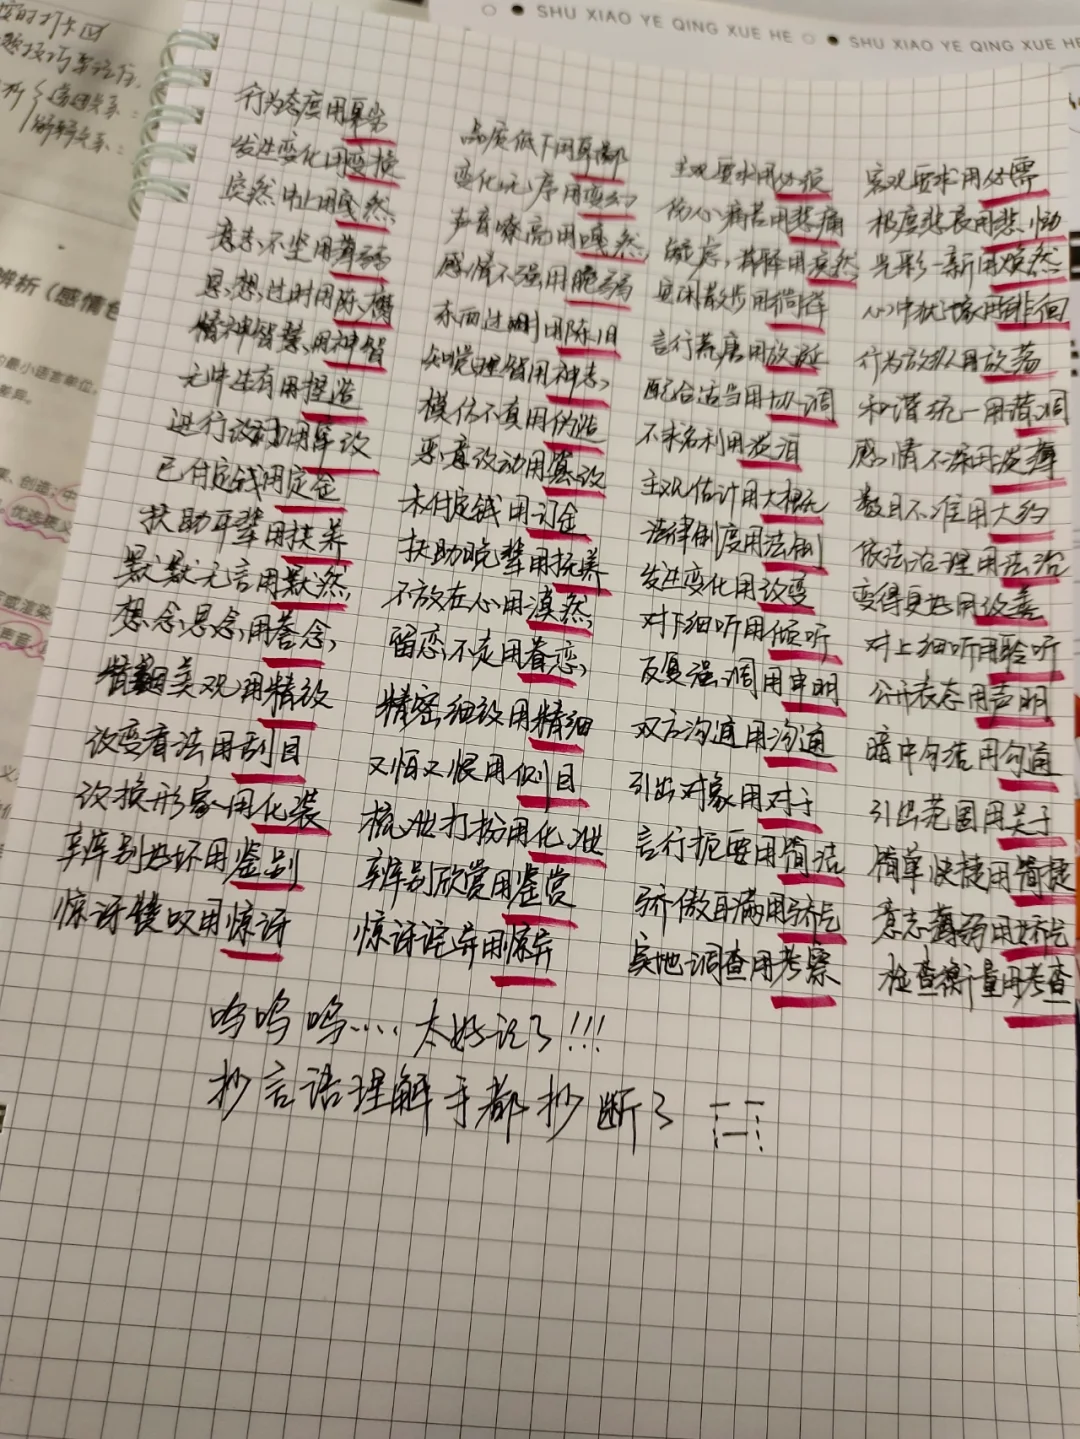 SHU XIAO YE QING XUE HE SHU XIAO YE QING XUE HE
辨析（感情色
最小语言单位，
差异。
行为态度用卑劣 品质低下用卑鄙 主观要求用必须 客观要求用必需
发生变化用变换 变化无序用变幻 伤心痛苦用悲痛 极度悲哀用悲恸
突然中止用戛然 声音嘹亮用嘎然 疑虑,释用涣然 光彩一新用焕然
意志不坚用薄弱 感情不强用脆弱 里闲散步用徜徉 心中犹豫用徘徊
思想过时用陈腐 东西过时用陈旧 言行荒唐用放诞 行为放纵用放荡
精神智慧用神智 知觉理智用神志 配合适当用协调 和谐统一用谐调
无中生有用捏造 模仿不真用伪造 不求名利用淡泊 感情不深用淡薄
进行设订用窜改 恶意改动用篡改 主观估计用大概 数目不准用大约
已付定钱用定金 未付定钱用订金 法律制度用法制 依法治理用法治
扶助平辈用扶养 扶助晚辈用抚养 发生变化用改变 变得更好用改善
默默无言用默然 不放在心用漠然 对下细听用倾听 对上细听用聆听
想念思念用眷念 留恋不走用眷恋 反复强调用申明 公开表态用声明
美观用精致 精密细致用精细 双方沟通用沟通 暗中勾结用勾通
改变看法用刮目 又怕又恨用侧目 引出对象用对于 引出范围用关于
改换形象用化装 梳妆打扮用化妆 言行扼要用简洁 简单快捷用简捷
辨别好坏用鉴别 辨别欣赏用鉴赏 骄傲自满用骄气 意志薄弱用娇气
惊讶赞叹用惊讶 惊讶诧异用惊异 实地调查用考察 检查衡量用考查
呜呜呜.... 太好记了!!!
抄言语理解手都抄断了